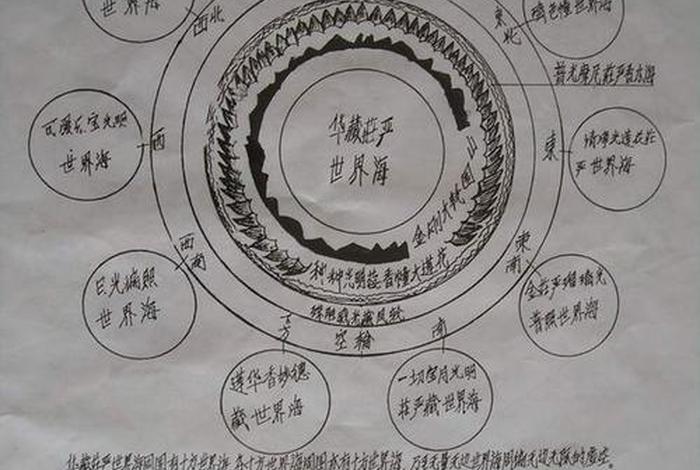 世界海
西北
东北
色幢世界海
普光摩尼莊严香水海
可爱乐宝光明
世界海
西
华藏莊严
世界海
东
清净光莲花莊
严世界海
金刚大轮围山
种种光明蕊香幢大莲花
西南
东南
日光遍照
世界海
金莊严琉璃光
普照世界海
殊胜威光藏风轮
空轮
下方
南
莲华香妙德
藏世界海
一切宝月光明
莊严藏世界海
华藏莊严世界海周围有十方世界海